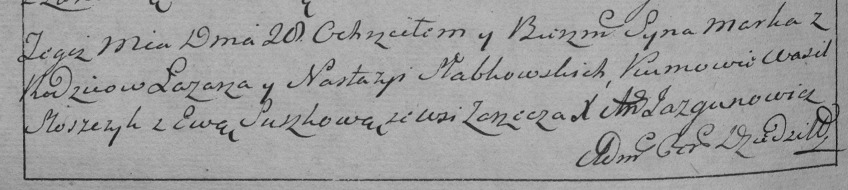 Tegiż Mca Dnia 20. Ochrzciłem y Bierzm. Syna Marka z
Rodzicow Łazarza y Nastazyi Słabkowskich, Kumowie Wasil
Stoszczyk z Ewą Suszkową ze wsi Zarzecza X An Jazgunowicz
Adm.